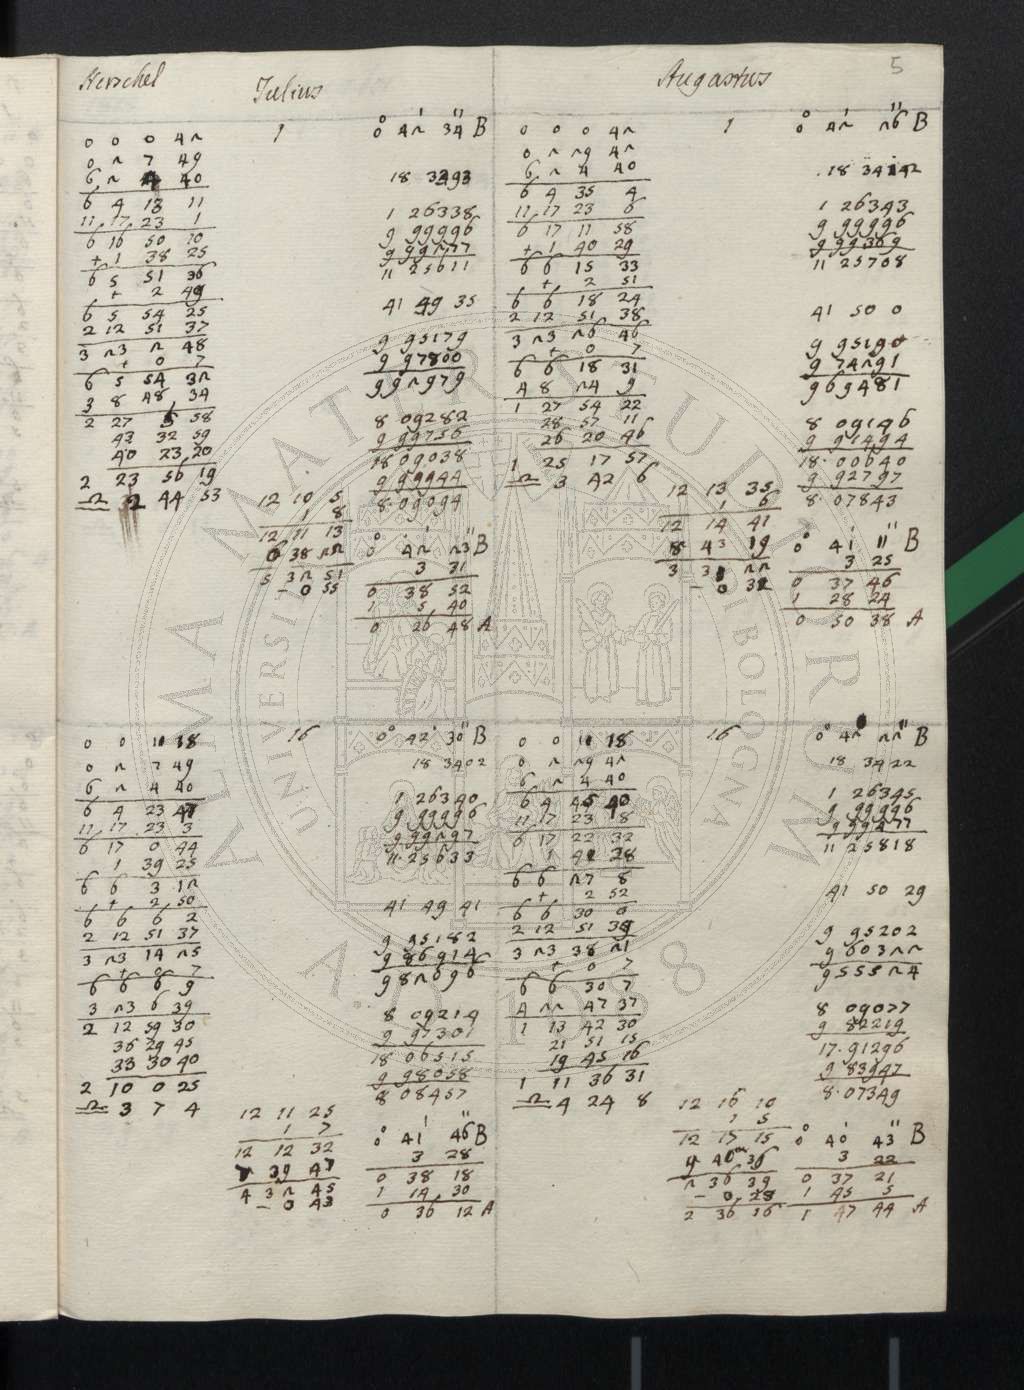 Herschel
Iulius
Augastus
5
1
0 42 34 B
0 0 0 42
0 2 7 49
6 2 4 40
6 4 13 11
11 17 23 1
6 16 50 10
+ 1 38 25
6 5 51 36
+ 2 49
6 5 54 25
2 12 51 37
3 23 2 48
+ 0 7
6 5 54 32
3 8 48 34
2 27 5 58
43 32 59
40 23 20
2 23 56 19
♎ 2 44 53
18 3393
1 26338
9 99996
9 99277
11 25611
41 49 35
9 95179
9 97800
9 92979
8 09282
9 99756
18 09038
9 99944
8.09094
12 10 5
1 8
12 11 13
6 38 22
5 32 51
- 0 55
0 42 23 B
3 31
0 38 52
1 5 40
0 26 48 A
1
0 42 26 B
0 0 0 42
0 2 29 42
6 2 4 40
6 4 35 4
11 17 23 6
6 17 11 58
+ 1 40 29
6 6 15 33
+ 2 51
6 6 18 24
2 12 51 38
3 23 26 46
+ 0 7
6 6 18 31
4 8 24 9
1 27 54 22
28 57 11
26 20 46
1 25 17 57
♎ 3 42 6
18 3412
1 26343
9 99996
9 99369
11 25708
41 50 0
9 95190
9 74291
9 69481
8 09146
9 91494
18.00640
9 92797
8.07843
12 13 35
1 6
12 14 41
8 43 19
3 31 22
- 0 32
0 41 11 B
3 25
0 37 46
1 28 24
0 50 38 A
16
0 42 30 B
0 0 11 38
0 2 7 49
6 2 4 40
6 4 23 47
11 17 23 3
6 17 0 44
1 39 25
6 6 3 12
+ 2 50
6 6 6 2
2 12 51 37
3 23 14 25
+ 0 7
6 6 6 9
3 23 6 39
2 12 59 30
36 29 45
33 30 40
2 10 0 25
♎ 3 7 4
18 3402
1 26340
9 99996
9 99297
11.25633
41 49 41
9 95182
9 86914
9 82096
8 09214
9 97301
18 06515
9 98058
8 08457
12 11 25
1 7
12 12 32
7 39 47
4 32 45
- 0 43
0 41 46 B
3 28
0 38 18
1 14 30
0 36 12 A
16
0 42 22 B
0 0 11 18
0 2 29 42
6 2 4 40
6 4 45 40
11 17 23 8
6 17 22 32
1 41 28
6 6 27 8
+ 2 52
6 6 30 0
2 12 51 39
3 23 38 21
+ 0 7
6 6 30 7
4 22 47 37
1 13 42 30
21 51 15
19 45 16
1 11 36 31
♎ 4 24 8
18 3422
1 26345
9 99996
9 99477
11 25818
41 50 29
9 95202
9 60322
9 55524
8 09077
9 82219
17.91296
9 83947
8.07349
12 16 10
1 5
12 17 15
9 40 36
2 36 39
- 0 23
2 36 16
0 40 43 B
3 22
0 37 21
1 45 5
1 47 44 A
ALMA MATER STUDIORUM
UNIVERSITÀ DI BOLOGNA
A.D. 1088